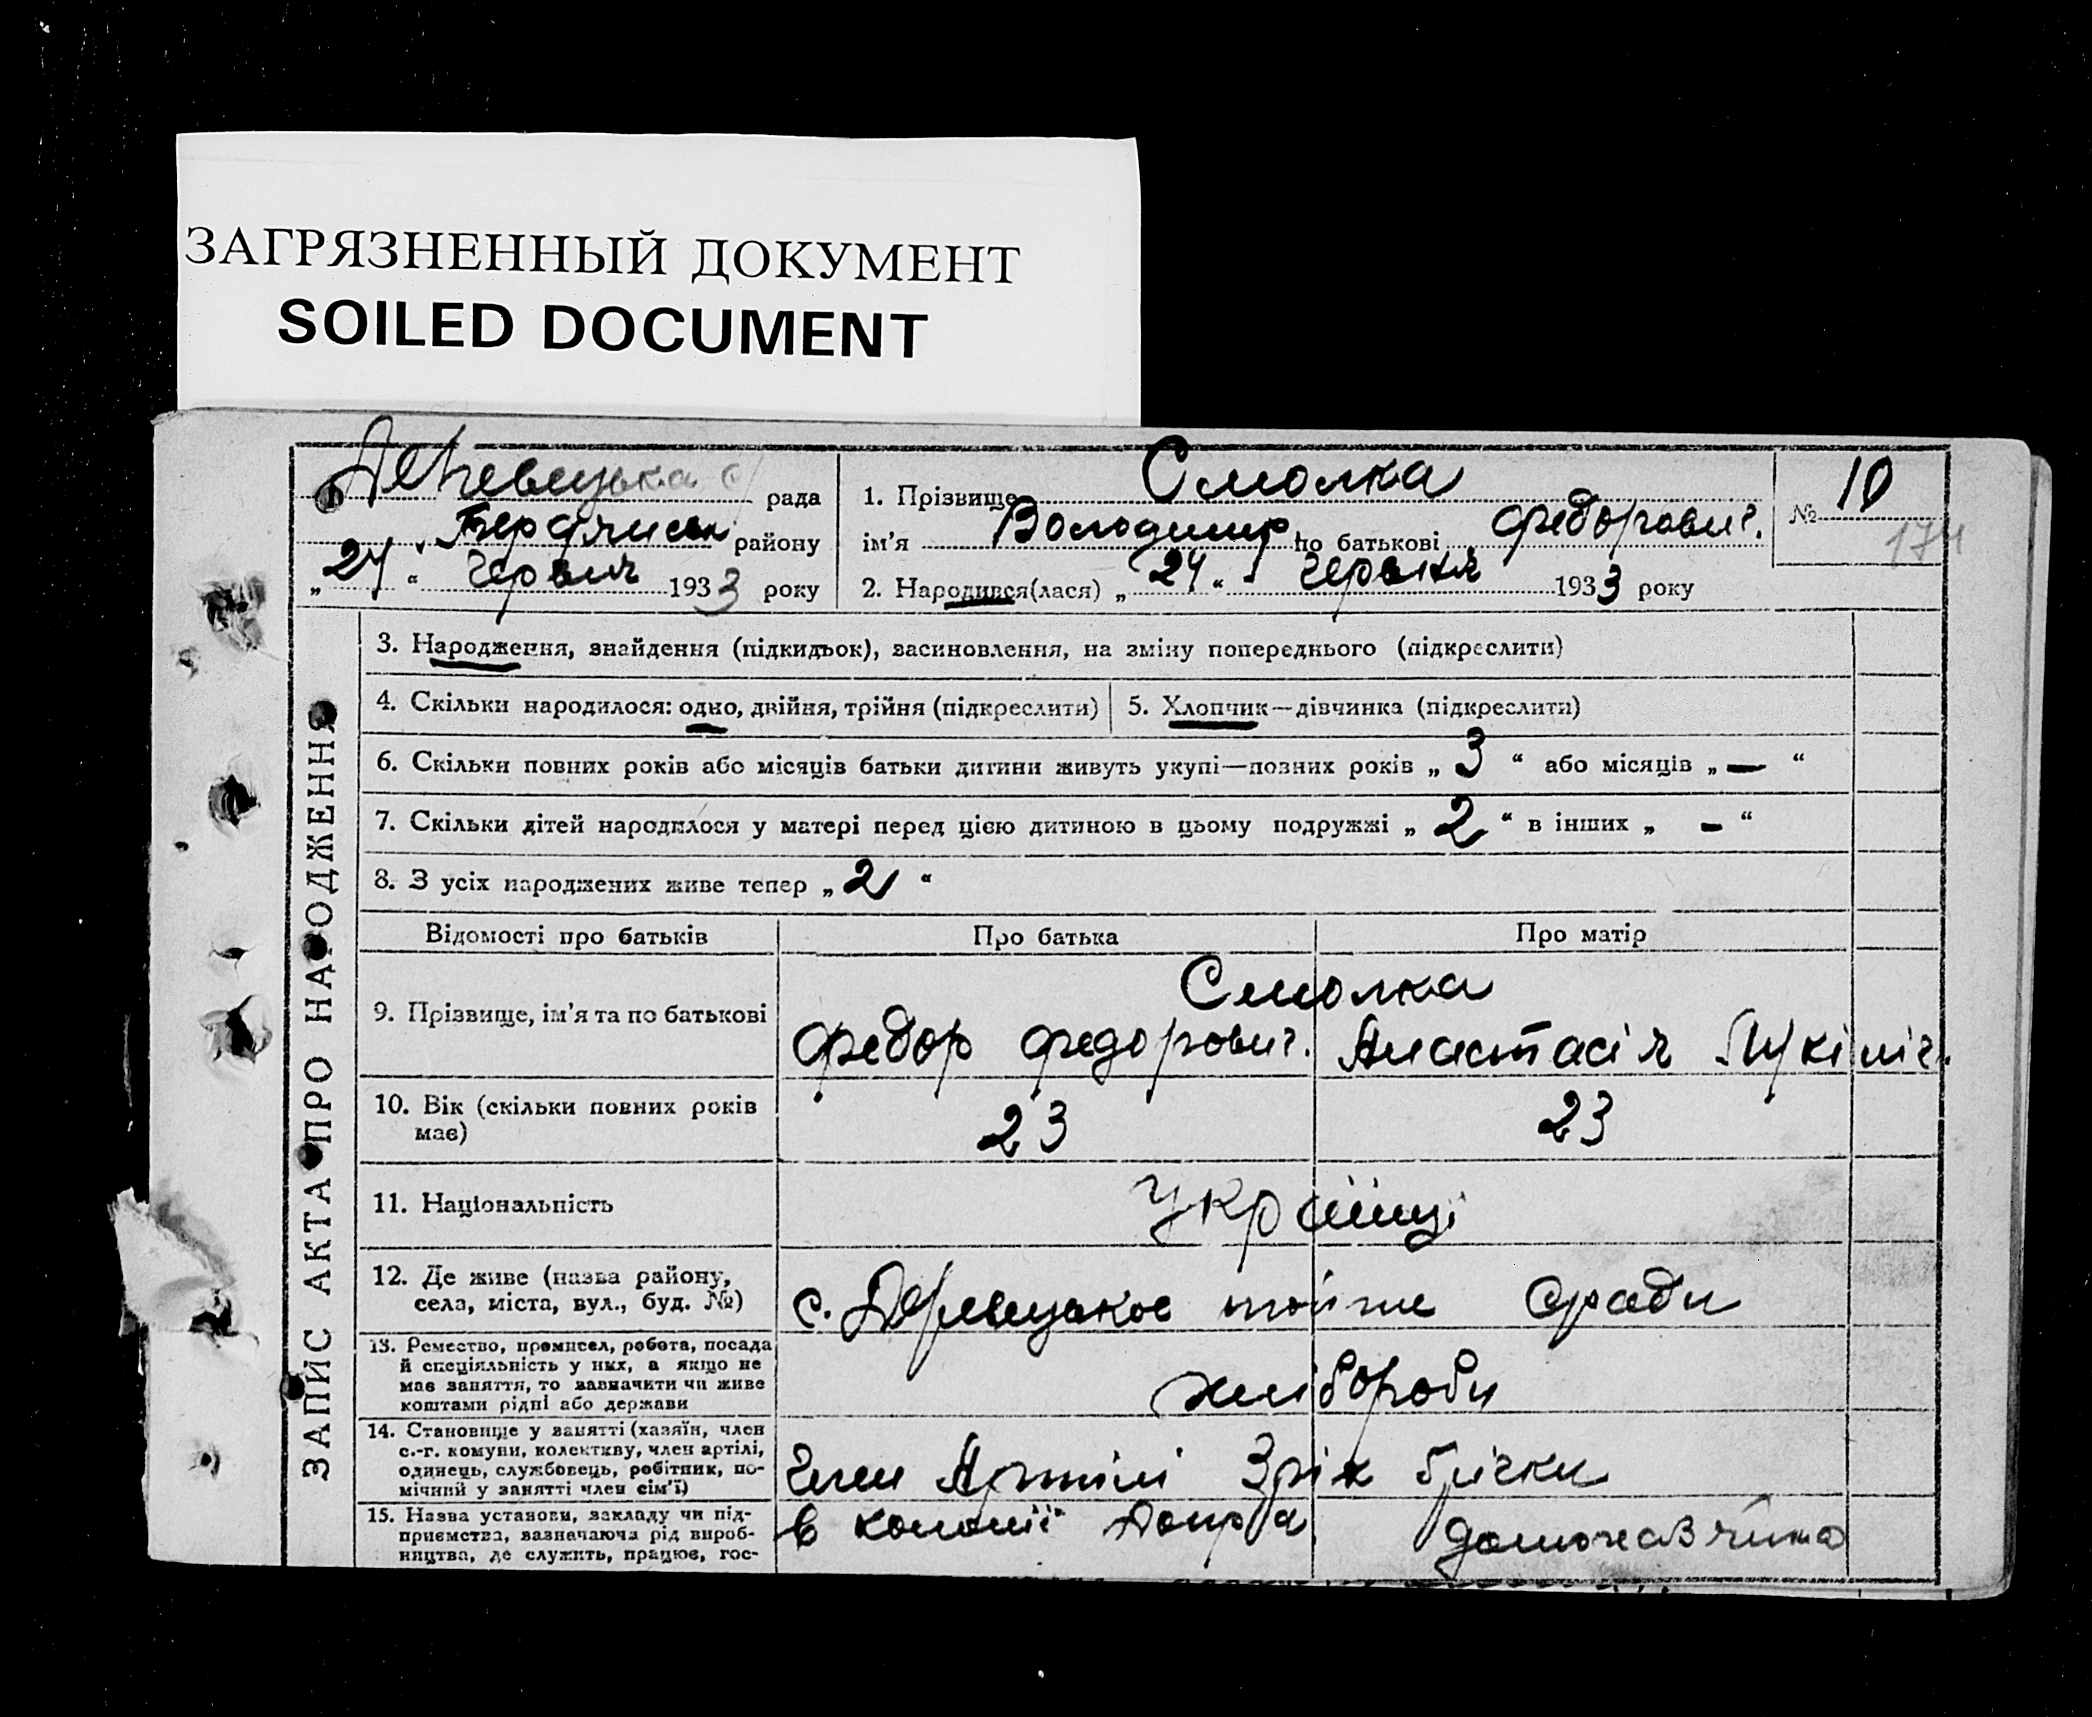 ЗАГРЯЗНЕННЫЙ ДОКУМЕНТ
SOILED DOCUMENT
рада
району
„24“ червня 1933 року
1. Прізвище Смолка
ім'я Володимир по батькові Федорович.
2. Народився(лася) „24“ червня 1933 року
№ 10
174
ЗАПИС АКТА ПРО НАРОДЖЕННЯ
3. Народження, знайдення (підкидьок), засиновлення, на зміну попереднього (підкреслити)
4. Скільки народилося: одно, двійня, трійня (підкреслити)
5. Хлопчик—дівчинка (підкреслити)
6. Скільки повних років або місяців батьки дитини живуть укупі—повних років „3“ або місяців „—“
7. Скільки дітей народилося у матері перед цією дитиною в цьому подружжі „2“ в інших „-“
8. З усіх народжених живе тепер „2“
Відомості про батьків Про батька Про матір
9. Прізвище, ім'я та по батькові
Смолка
Федор Федорович. Анастасія
10. Вік (скільки повних років має) 23 23
11. Національність Українці
12. Де живе (назва району, села, міста, вул., буд. №)
с. тойже сради
13. Ремество, промисел, робота, посада
й спеціяльність у них, а якщо не
має заняття, то зазначити чи живе
коштами рідні або держави
хлібороби
14. Становище у занятті (хазяїн, член
с.-г. комуни, колективу, член артілі,
одинець, службовець, робітник, по-
мічний у занятті член сім'ї)
Член Артілі
15. Назва установи, закладу чи під-
приємства, зазначаючи рід вироб-
ництва, де служить, працює, гос-
в колонії